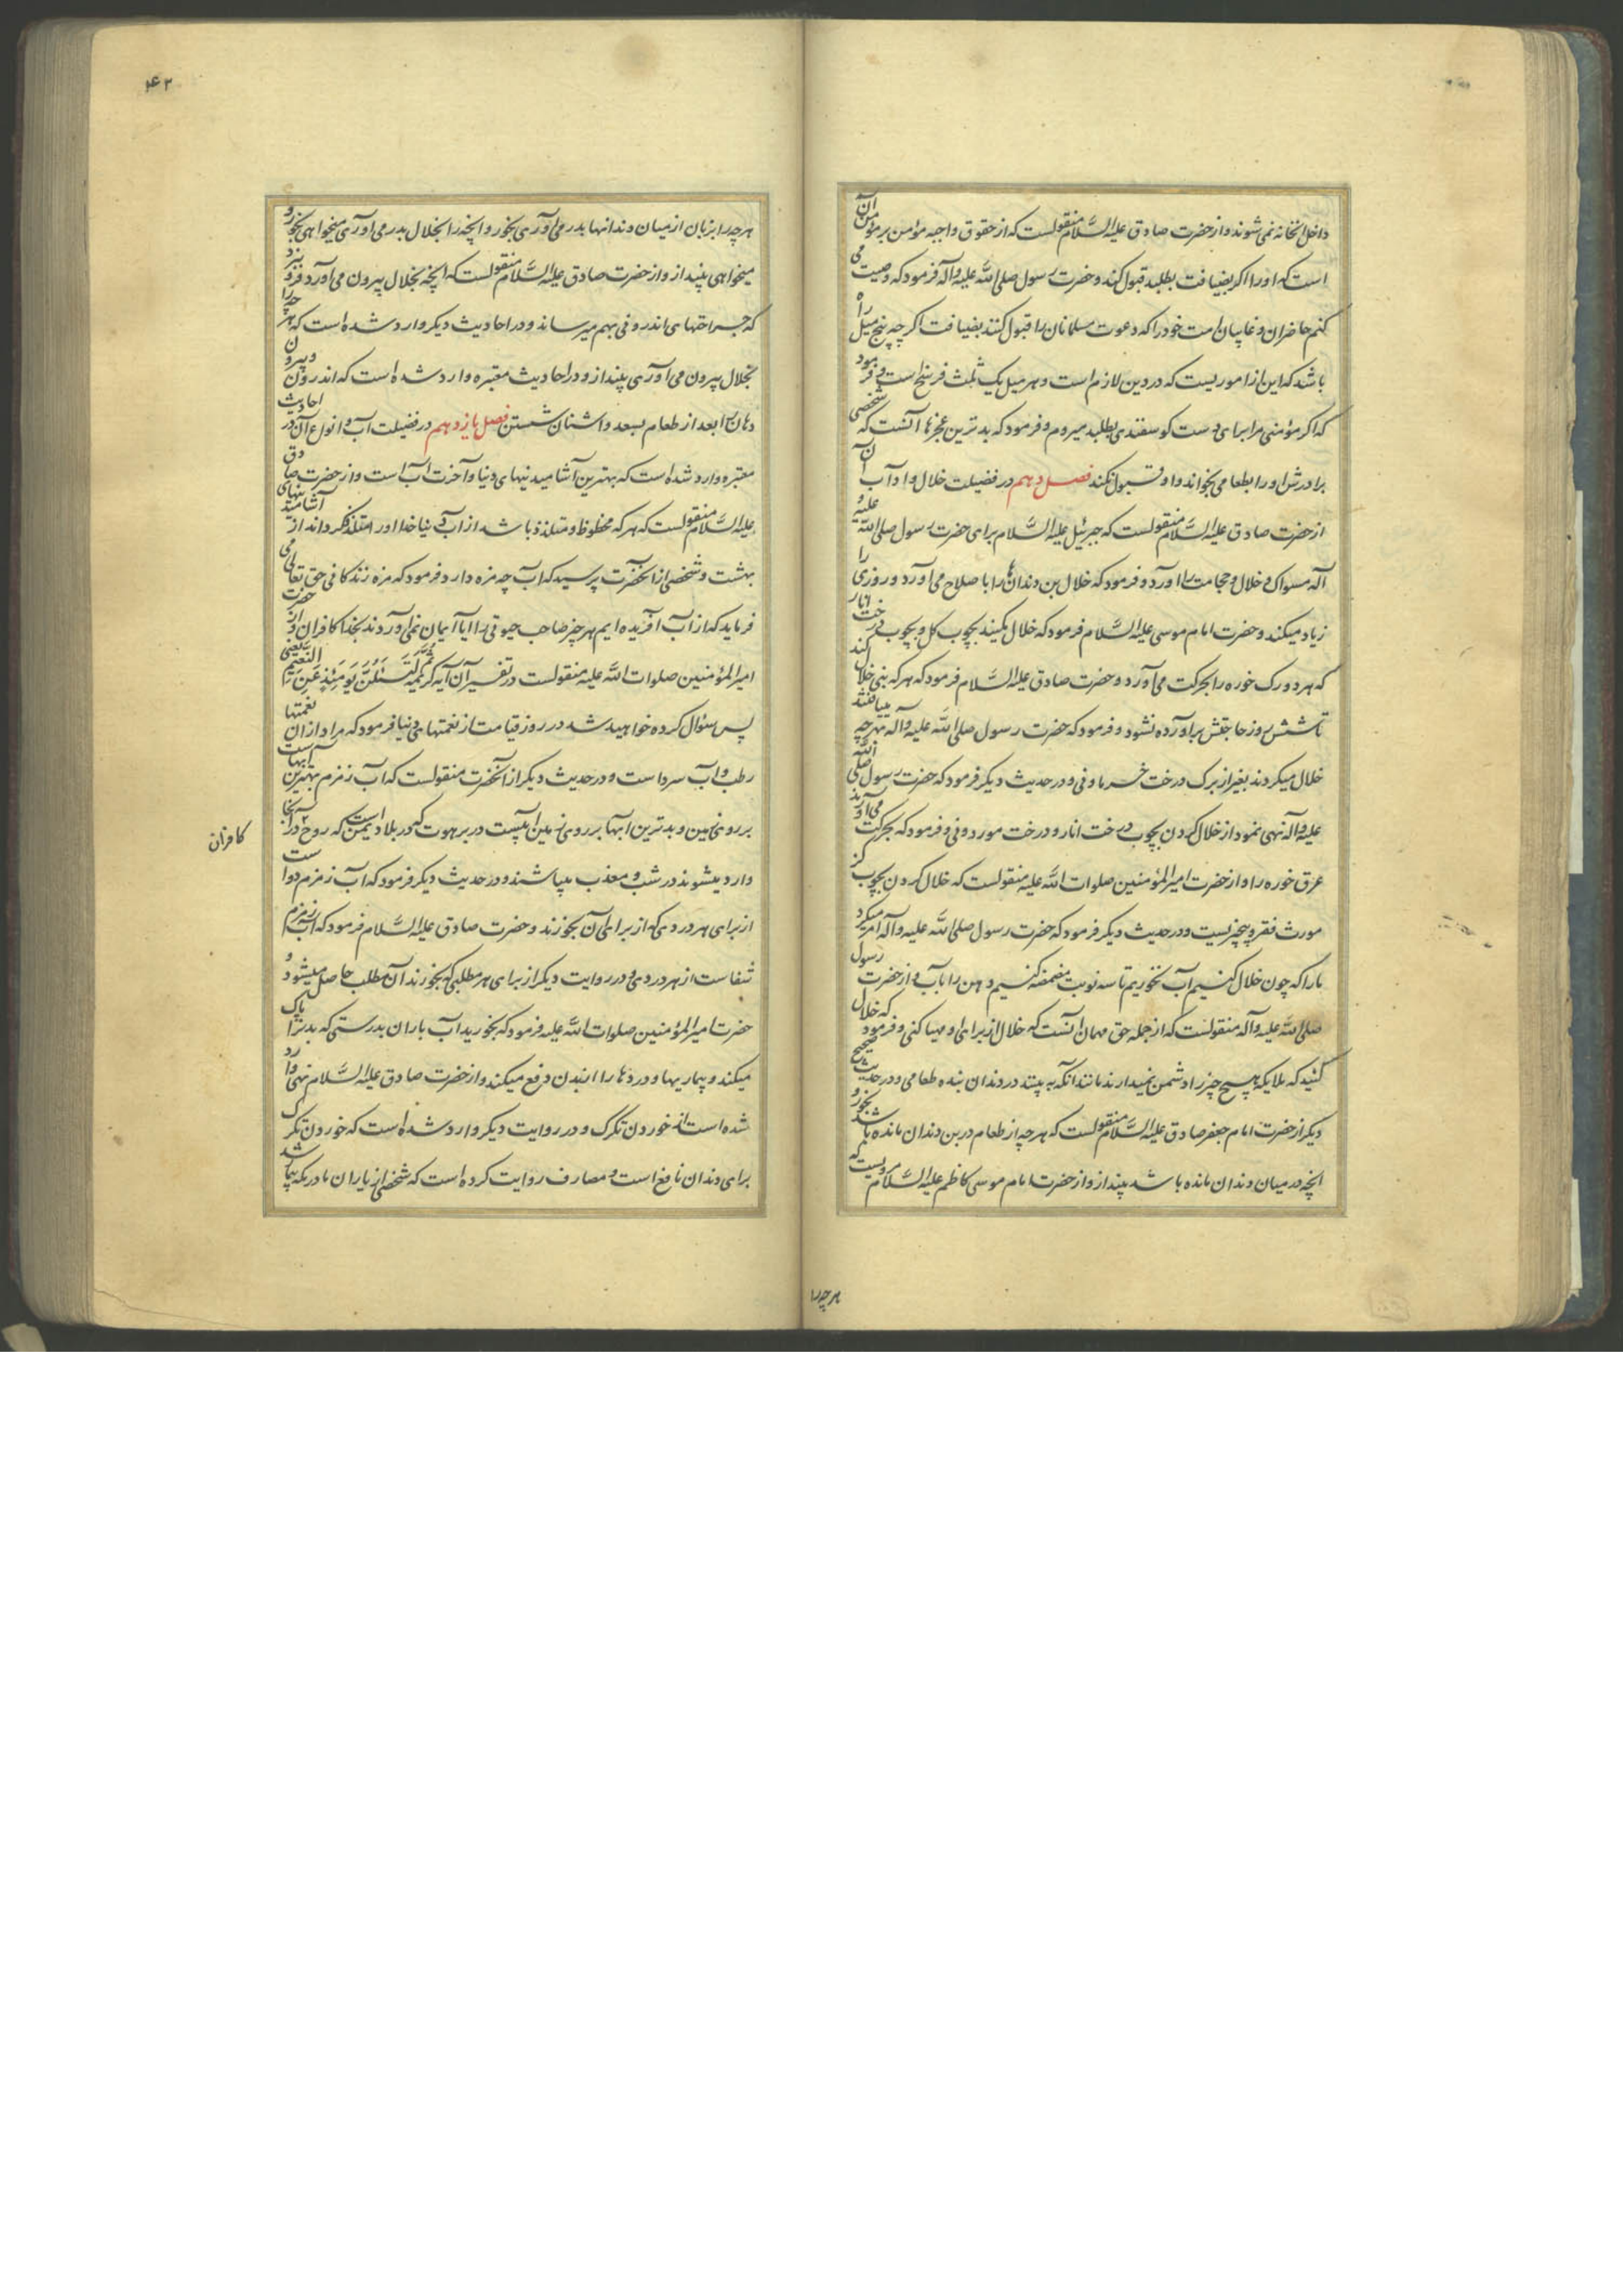 داخل آنخانه نمی شوند و از حضرت صادق علیه السَّلام منقولست که از حقوق واجبه مؤمن بر مؤمن آن
است که او را اکر بضیافت بطلبد قبول کند و حضرت رسول صلی الله علیه وآله فرمود که وصیت می
کنم حاضران و غایبان امت خود را که دعوت مسلمانان را قبول کنند بضیافت اکر چه پنج میل راه
باشد که این از اموریست که در دین لازم است و هر میل یک ثلث فرسخ است و فرمود
که اکر مؤمنی مرا برای دست کوسفندی بطلبد میروم و فرمود که بدترین عجزها آنست که شخصی
برادرش او را بطعامی بخواند و او قبول نکند فصل دهم در فضیلت خلال و آداب آن
از حضرت صادق علیه السَّلام منقولست که جبرئیل علیه السَّلام برای حضرت رسول صلی الله علیه و
آله مسواک و خلال و حجامت را آورد و فرمود که خلال بن دندانها را باصلاح می آورد و روزی را
زیاد میکند و حضرت امام موسی علیه السَّلام فرمود که خلال مکنید بچوب کل و بچوب درخت انار
که هر دو رک خوره را بحرکت می آورد و حضرت صادق علیه السَّلام فرمود که هر که بنی خلال کند
تا شش روز حاجتش برآورده نشود و فرمود که حضرت رسول صلی الله علیه وآله بهر چه مییافتند
خلال میکردند بغیر از برک درخت خرما و نی و در حدیث دیکر فرمود که حضرت رسول صلی الله
علیه وآله نهی نمود از خلال کردن بچوب درخت انار و درخت مورد و نی و فرمود که بحرکت می آورند
عرق خوره را و از حضرت امیر المؤمنین صلوات الله علیه منقولست که خلال کردن بچوب کز
مورث فقر و پچیزیست و در حدیث دیکر فرمود که حضرت رسول صلی الله علیه وآله امر میکرد
ما را که چون خلال کنیم آب نخوریم تا سه نوبت مضمضه کنیم دهن را بآب و از حضرت رسول
صلی الله علیه وآله منقولست که از جمله حق مهمان آنست که خلال از برای او مهیا کنی و فرمود که خلال
کنید که ملایکه هیچ چیز را دشمن نمیدارند مانند آنکه به بینند در دندان بنده طعامی و در حدیث صحیح
دیکر از حضرت امام جعفر صادق علیه السَّلام منقولست که هر چه از طعام در بن دندان مانده باشد بخور و
آنچه در میان دندان مانده باشد بینداز و از حضرت امام موسی کاظم علیه السَّلام مرویست که
هر چه را
۴۳
هر چه را بزبان از میان دندانها بدر می آوری بخور و آنچه را بخلال بدر می آوری میخواهی بخور و
میخواهی بینداز و از حضرت صادق علیه السَّلام منقولست که آنچه بخلال بیرون می آورد فرو نبرد
که جراحتهای اندرونی بهم میرساند و در احادیث دیکر وارد شده است که هر چه را
بخلال بیرون می آوری بینداز و در احادیث معتبره وارد شده است که اندرون و بیرون
دهان را بعد از طعام بسعد و اشنان شستن فصل یازدهم در فضیلت آب و انواع آن در احادیث
معتبره وارد شده است که بهترین آشامیدنیهای دنیا و آخرت آب است و از حضرت صادق
علیه السَّلام منقولست که هر که محظوظ و متلذذ باشد از آب دنیا خدا او را متلذذ کرداند از آشامیدنیهای
بهشت و شخصی از آنحضرت پرسید که آب چه مزه دارد فرمود که مزه زندکانی حق تعالی می
فرماید که از آب آفریده ایم هر چیز صاحب حیوتی را آیا ایمان نمی آورند بخدا کافران و از حضرت
امیر المؤمنین صلوات الله علیه منقولست در تفسیر آن آیه کریمه ثُمَّ لَتُسْئَلُنَّ یَوْمَئِذٍ عَنِ النَّعِیمِ یعنی
پس سؤال کرده خواهید شد در روز قیامت از نعمتهای دنیا فرمود که مراد از آن نعمتها
رطب و آب سرد است و در حدیث دیکر از آنحضرت منقولست که آب زمزم بهترین آبهاست
بر روی زمین و بدترین آبها بر روی زمین آبیست در برهوت که در بلاد یمن است که روح در آنجا
کافران
وارد میشوند در شب و معذب میباشند و در حدیث دیکر فرمود که آب زمزم دواست
از برای هر دردی که از برای آن بخورند و حضرت صادق علیه السَّلام فرمود که آب زمزم
شفاست از هر دردی و در روایت دیکر از برای هر مطلبی که بخورند آن مطلب حاصل میشود و
حضرت امیر المؤمنین صلوات الله علیه فرمود که بخورید آب باران بدرستی که بدن را پاک
میکند و بیماریها و دردها را از بدن دفع میکند و از حضرت صادق علیه السَّلام نهی وارد
شده است از خوردن تکرک و در روایت دیکر وارد شده است که خوردن تکرک
برای دندان نافع است و مصارف روایت کرده است که شخصی از یاران ما در مکه